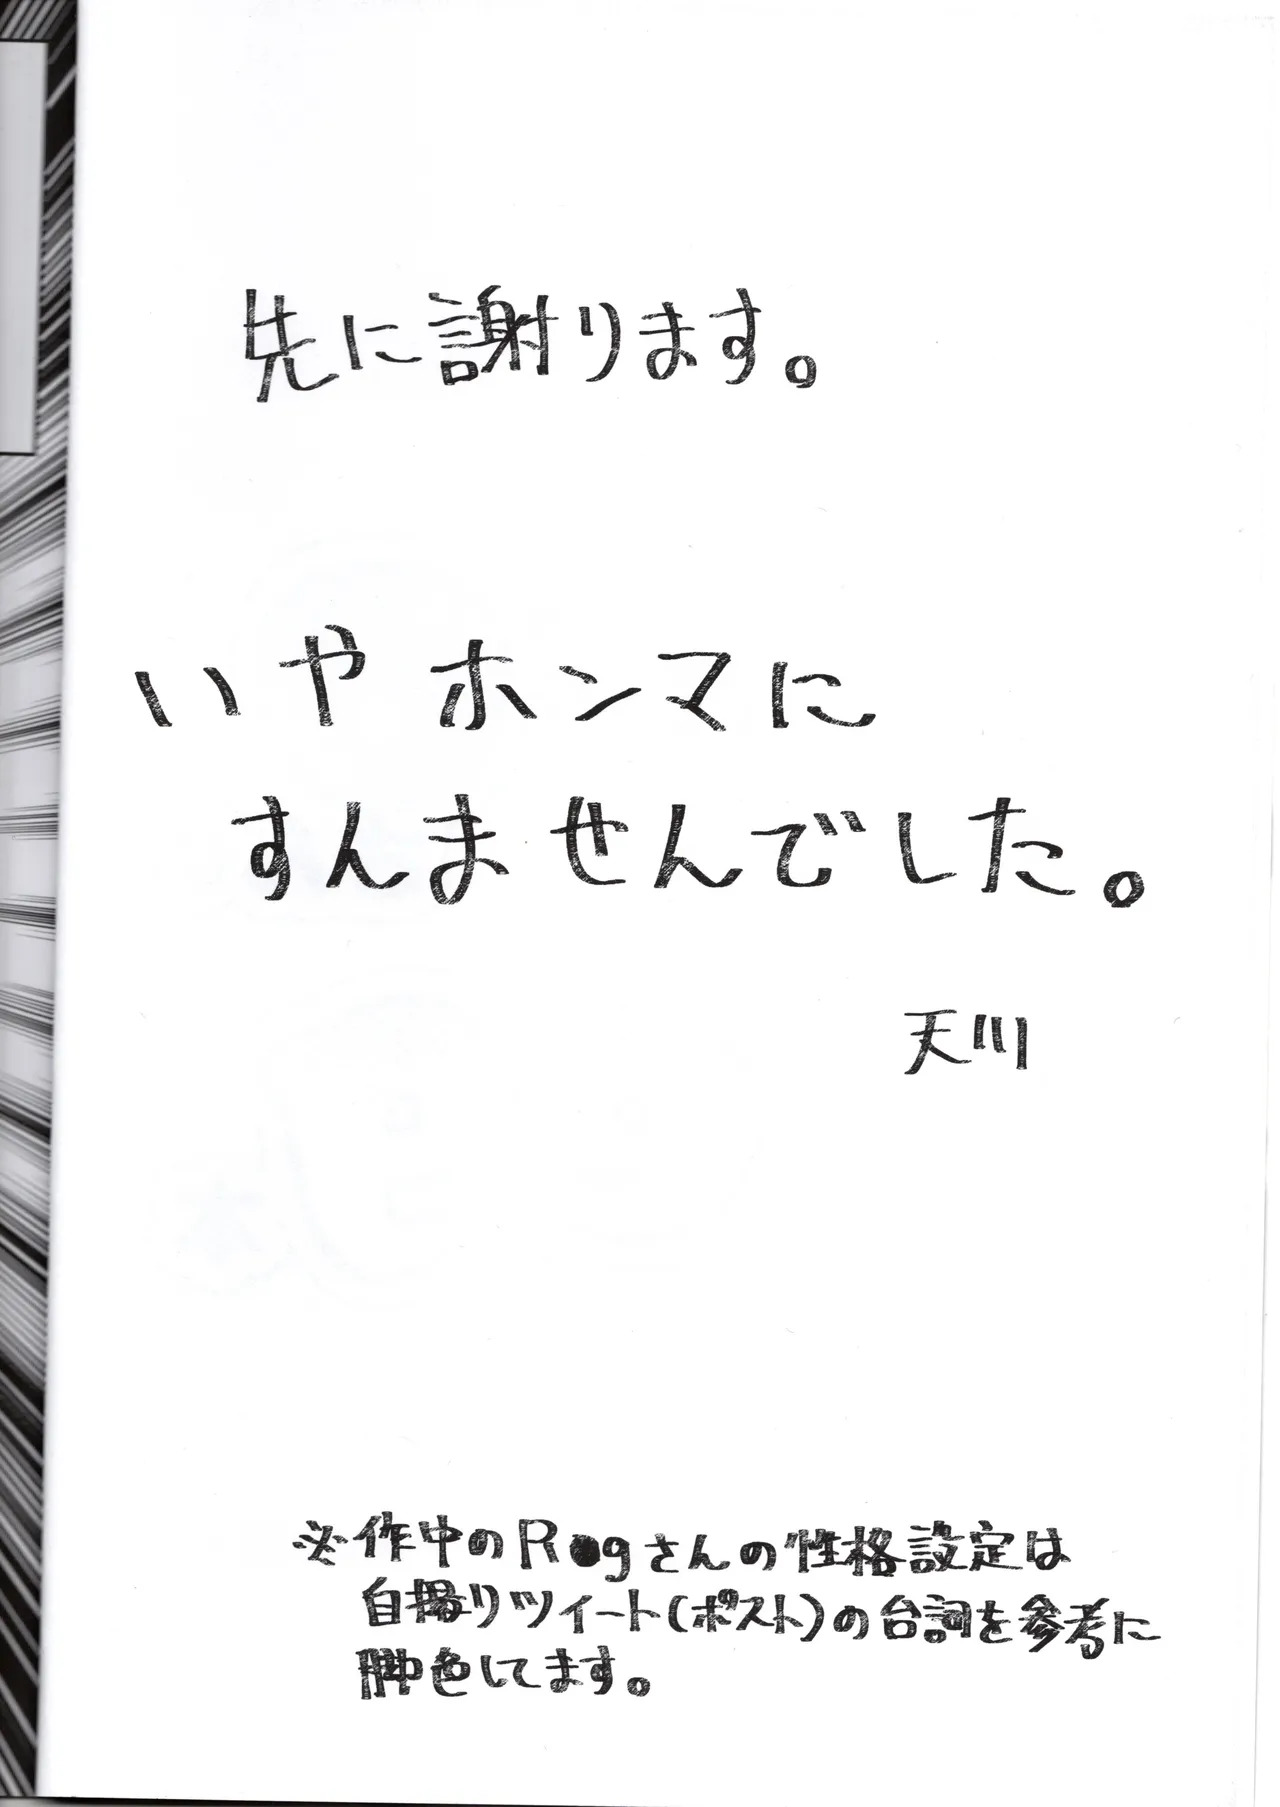 先に謝ります。
いや ホンマに
すんませんでした。
天川
※作中のR●gさんの性格設定は
自撮りツイート(ポスト)の台詞を参考に
脚色してます。